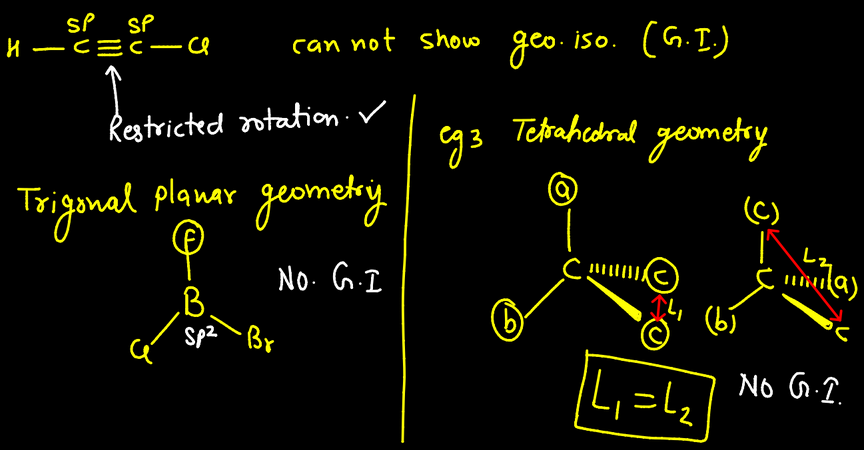 SP SP
H — C ≡ C — Cl can not show geo. iso. (G.I.)
Restricted rotation. ✓
Trigonal planar geometry
F
B
SP²
Cl Br
No. G.I
eg 3 Tetrahedral geometry
a
C c
b c
L₁
(c)
L₂
C (a)
(b) c
L₁ = L₂
No G.I.